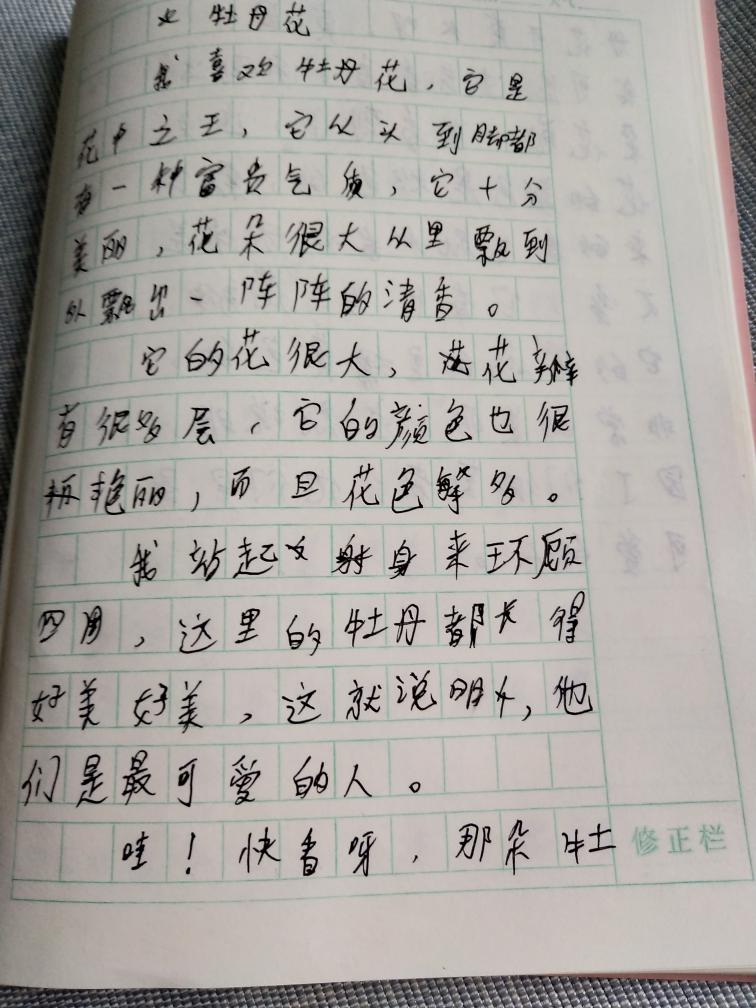 牡丹花
我喜欢牡丹花，它是
花中之王，它从头到脚都
有一种富贵气质，它十分
美丽，花朵很大从里飘到
外飘出一阵阵的清香。
它的花很大，花瓣
有很多层，它的颜色也很
艳丽，而且花色繁多。
我站起身来环顾
四周，这里的牡丹都长得
好美好美，这就说明，他
们是最可爱的人。
哇！快香呀，那朵牡
修正栏